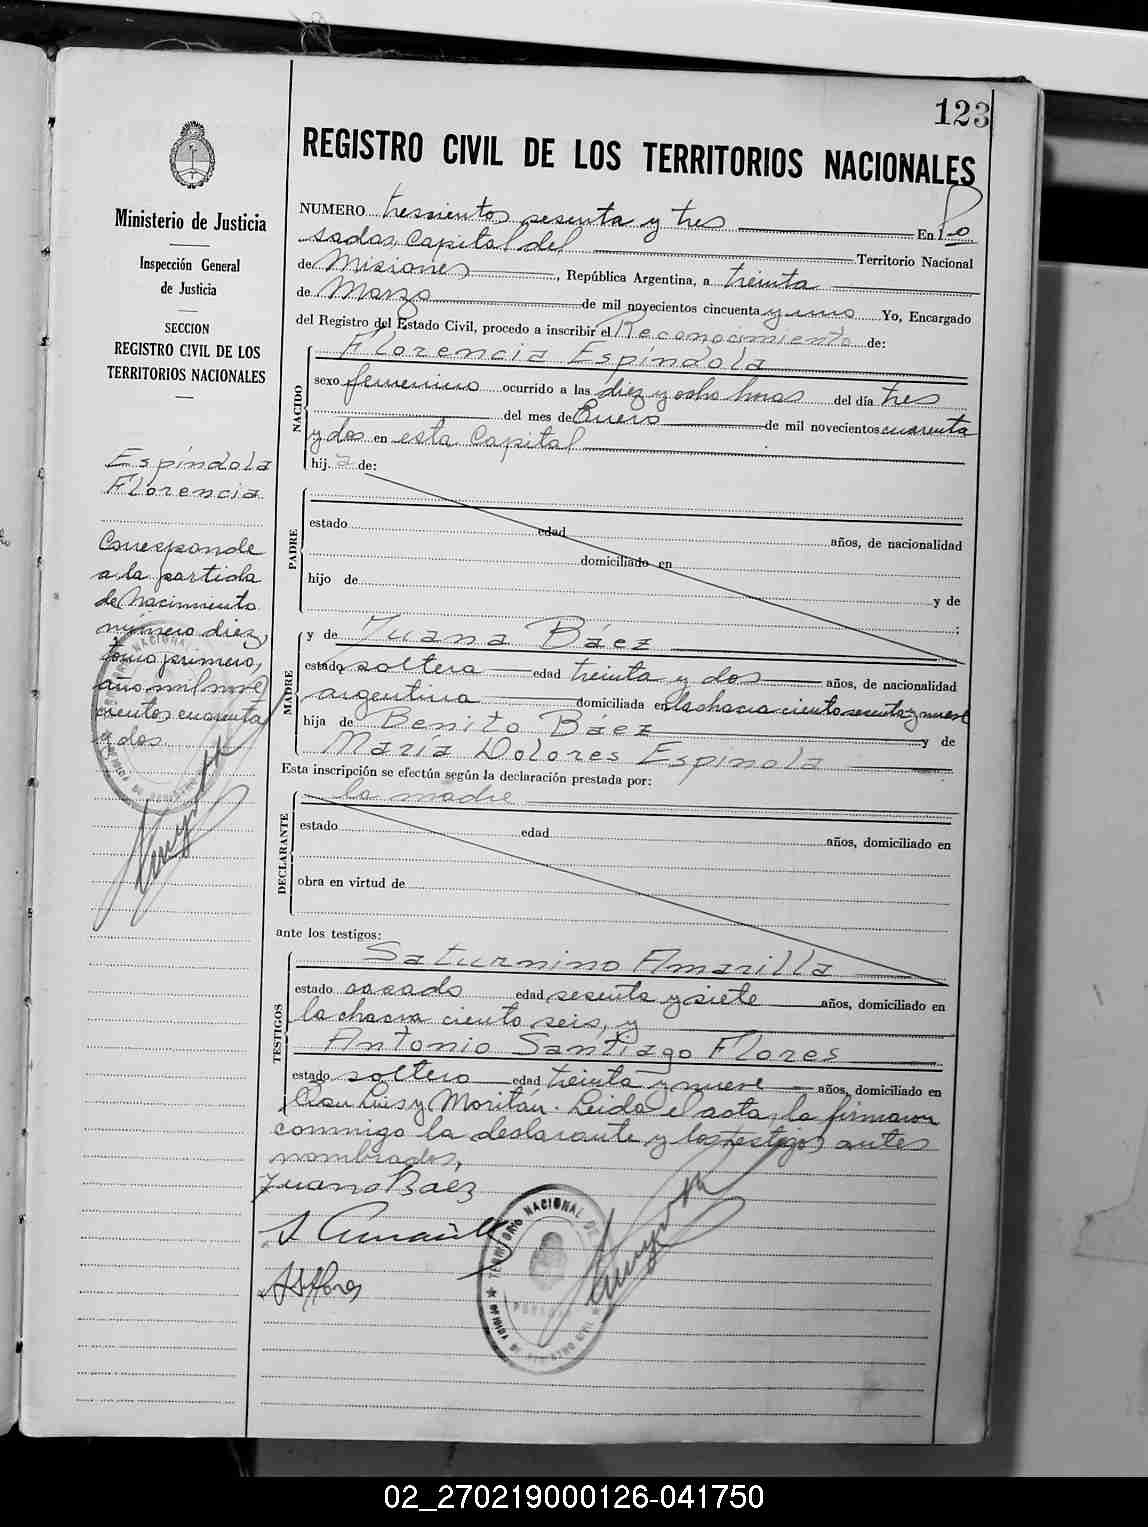 123
REGISTRO CIVIL DE LOS TERRITORIOS NACIONALES
Ministerio de Justicia
Inspección General
de Justicia
SECCION
REGISTRO CIVIL DE LOS
TERRITORIOS NACIONALES
Espíndola
Florencia
Corresponde
a la partida
de Nacimiento
número diez,
tomo primero,
año mil nove
cientos cuarenta
y dos
NUMERO trescientos sesenta y tres En Po
sadas, Capital del Territorio Nacional
de Misiones, República Argentina, a treinta
de Marzo de mil novecientos cincuenta y uno Yo, Encargado
del Registro del Estado Civil, procedo a inscribir el Reconocimiento de:
NACIDO
Florencia Espíndola
sexo femenino ocurrido a las diez y ocho horas del día tres
del mes de Enero de mil novecientos cuarenta
y dos en esta Capital
hij a de:
PADRE
estado edad años, de nacionalidad
domiciliado en
hijo de y de
;
MADRE
y de Juana Báez
estado soltera edad treinta y dos años, de nacionalidad
argentina domiciliada en la chacra ciento sesenta y nueve
hija de Benito Báez y de
María Dolores Espíndola
Esta inscripción se efectúa según la declaración prestada por:
DECLARANTE
la madre
estado edad años, domiciliado en
obra en virtud de
ante los testigos:
TESTIGOS
Saturnino Amarilla
estado casado edad sesenta y siete años, domiciliado en
la chacra ciento seis, y
Antonio Santiago Flores
estado soltero edad treinta y nueve años, domiciliado en
San Luis y Moritán. Leida el acta, la firmaron
conmigo la declarante y los testigos antes
nombrados,
Juana Baez
S Amarilla
A S Flores
TERRITORIO NACIONAL DE
OFICINA DE REGISTRO CIVIL
02_270219000126-041750